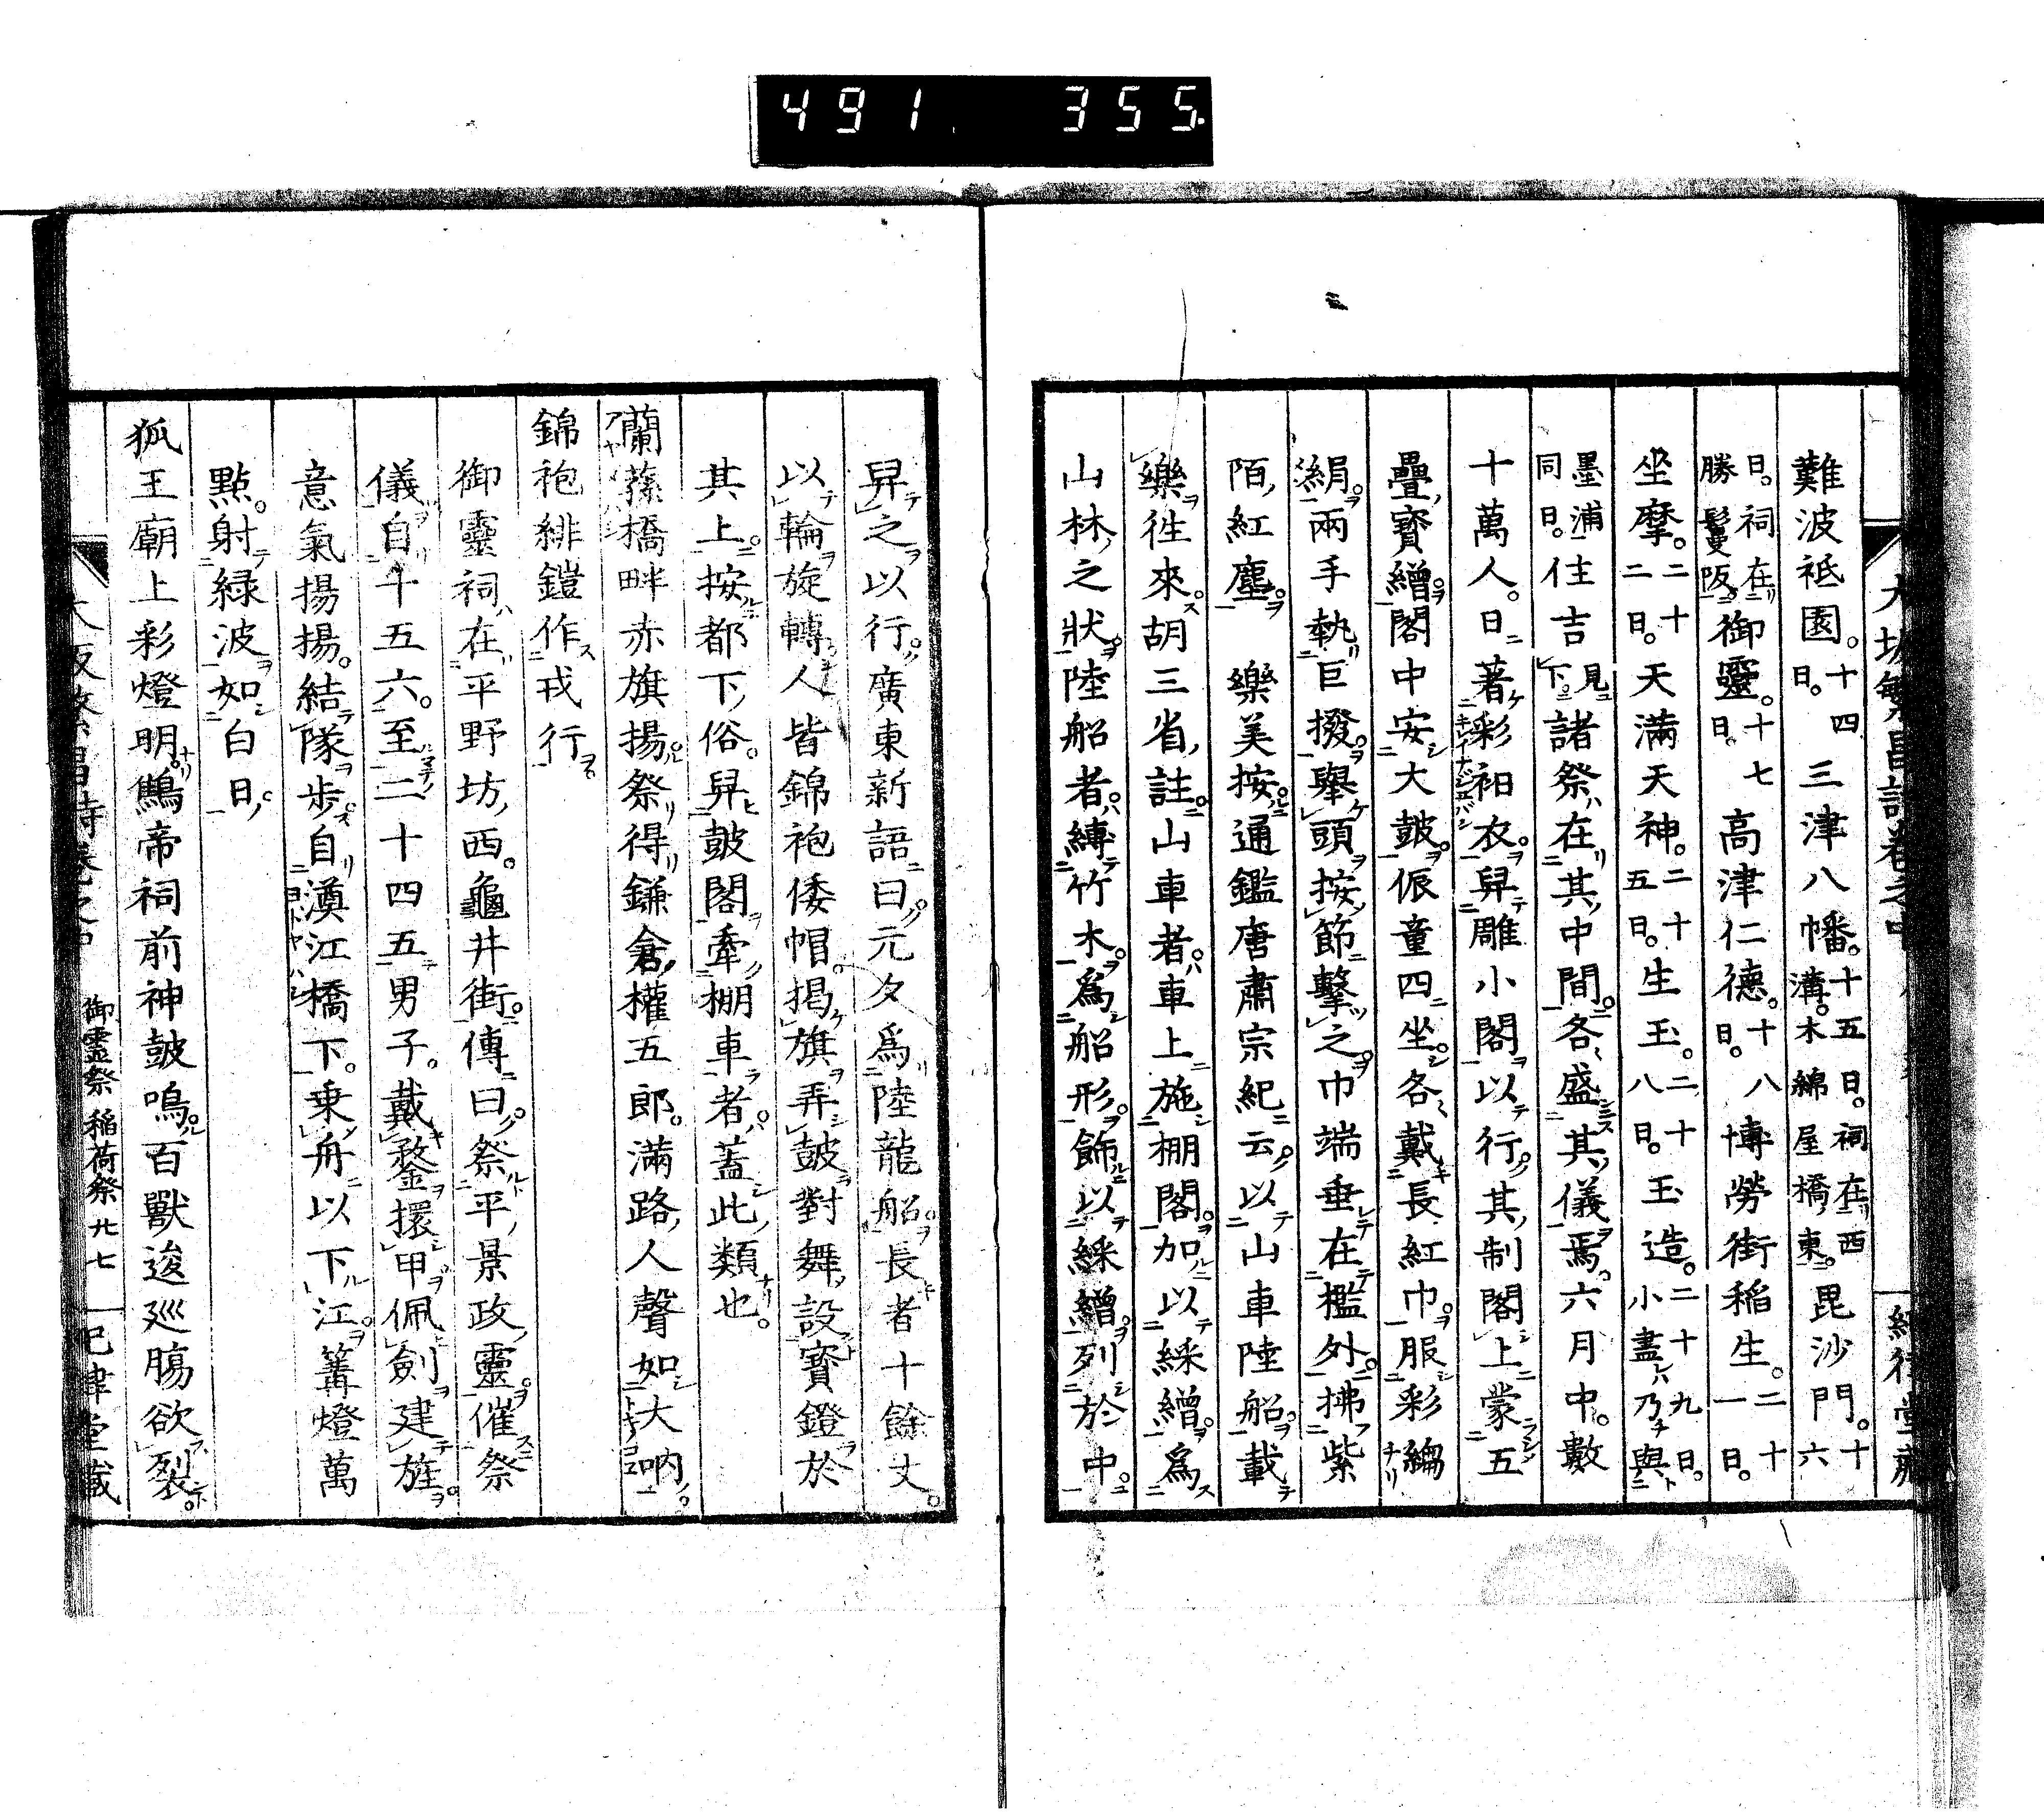 491 355
難波祗園。十四日。三津八幡。十五日。祠在西溝。木綿屋橋東。毘沙門。十六
日。祠在勝鬘阪。御靈。十七日。高津仁德。十八日。博勞街稲生。二十一日。
坐摩。二十二日。天滿天神。二十五日。生玉。二十八日。玉造。二十九日。小盡乃與
墨浦同日。住吉見下。諸祭在其中間。各盛其儀焉。六月中。數
十萬人。日著彩衵衣。舁雕小閣以行。其制閣上蒙五
疊寳繒。閣中安大皷。侲童四坐。各戴長紅巾。服彩縐
絹。兩手執巨撥。舉頭按節擊之。巾端垂在檻外。拂紫
陌紅塵。 樂美按。通鑑唐肅宗紀云。以山車陸船載
樂徃來。胡三省註。山車者。車上施棚閣。加以綵繒。爲
山林之狀。陸船者。縛竹木爲船形。飾以綵繒。列於中。
舁之以行。廣東新語曰。元夕爲陸龍船。長者十餘丈。
以輪旋轉。人皆錦袍倭帽。揭旗弄皷對舞。設寳鐙於
其上。按都下俗。舁皷閣。牽棚車者。蓋此類也。
蘭蓀橋畔赤旗揚。祭得鎌倉權五郎。滿路人聲如大吶。
錦袍緋鎧作戎行。
御靈祠在平野坊西。龜井街。傳曰。祭平景政靈。催祭
儀。自十五六。至二十四五男子。戴鍪擐甲。佩劍建旌。
意氣揚揚。結隊步。自澳江橋下。乗舟以下江。篝燈萬
點。射緑波如白日。
狐王廟上彩燈明。鷦帝祠前神皷鳴。百獸逡巡膓欲裂。
御霊祭 稲荷祭 廿七